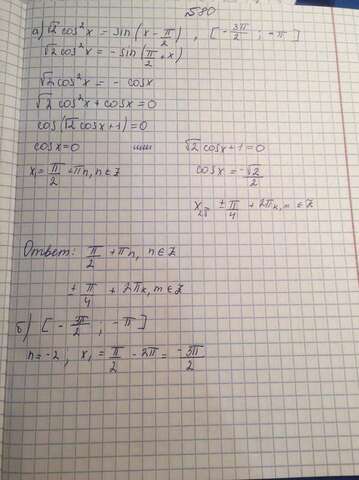 №580
а) √2 cos²x = sin(x - π/2), [-3π/2; -π]
√2 cos²x = -sin(π/2 + x)
√2 cos²x = -cosx
√2 cos²x + cosx = 0
cos(√2 cosx + 1) = 0
cosx = 0 или √2 cosx + 1 = 0
x₁ = π/2 + πn, n ∈ Z cosx = -√2/2
± π/4 + 2πk, m ∈ Z
Ответ: π/2 + πn, n ∈ Z
± π/4 + 2πk, m ∈ Z
б) [-3π/2; -π]
n = -2, x₁ = π/2 - 2π = -3π/2